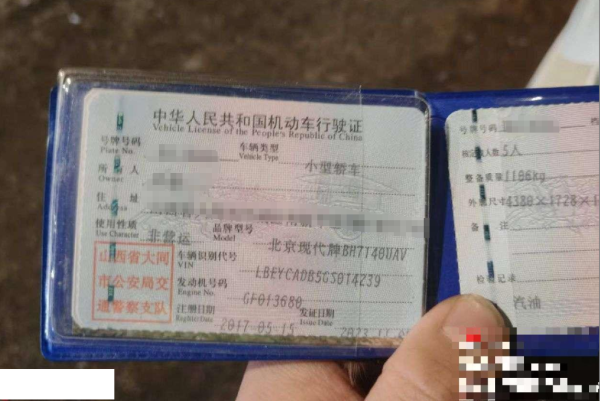 中华人民共和国机动车行驶证
Vehicle License of the People's Republic of China
号牌号码
Plate No.
车辆类型
Vehicle Type
小型轿车
所有人
Owner
住址
Address
使用性质
Use Character
非营运
品牌型号
Model
北京现代牌BH7140UAV
车辆识别代号
VIN
LBEYCADB5GS014239
发动机号码
Engine No.
GF013680
注册日期
Register Date
2017-05-15
发证日期
Issue Date
山西省大同
市公安局交
通警察支队
号牌号码
核定人数 5人
整备质量 1106kg
外廓尺寸 4380×1728×1
备注
检验记录
汽油